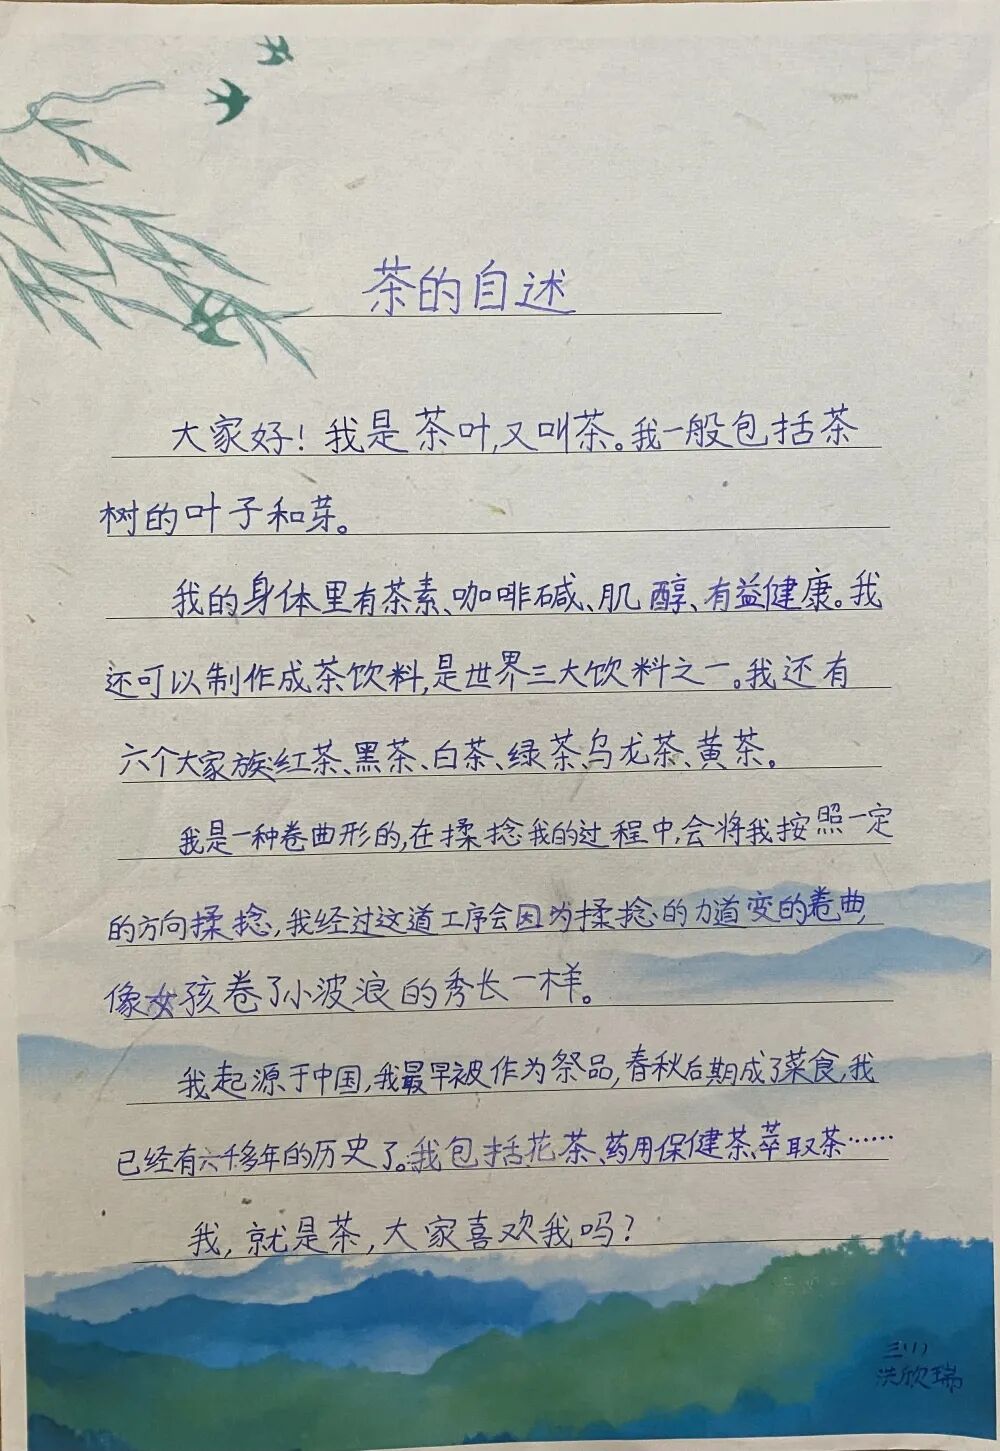 茶的自述
大家好！我是茶叶,又叫茶。我一般包括茶
树的叶子和芽。
我的身体里有茶素、咖啡碱、肌醇、有益健康。我
还可以制作成茶饮料,是世界三大饮料之一。我还有
六个大家族:红茶、黑茶、白茶、绿茶、乌龙茶、黄茶。
我是一种卷曲形的,在揉捻我的过程中,会将我按照一定
的方向揉捻,我经过这道工序会因为揉捻的力道变的卷曲,
像女孩卷了小波浪的秀长一样。
我起源于中国,我最早被作为祭品,春秋后期成了菜食,我
已经有六千多年的历史了。我包括花茶、药用保健茶、萃取茶……
我,就是茶,大家喜欢我吗?
三(1)
洪欣瑞